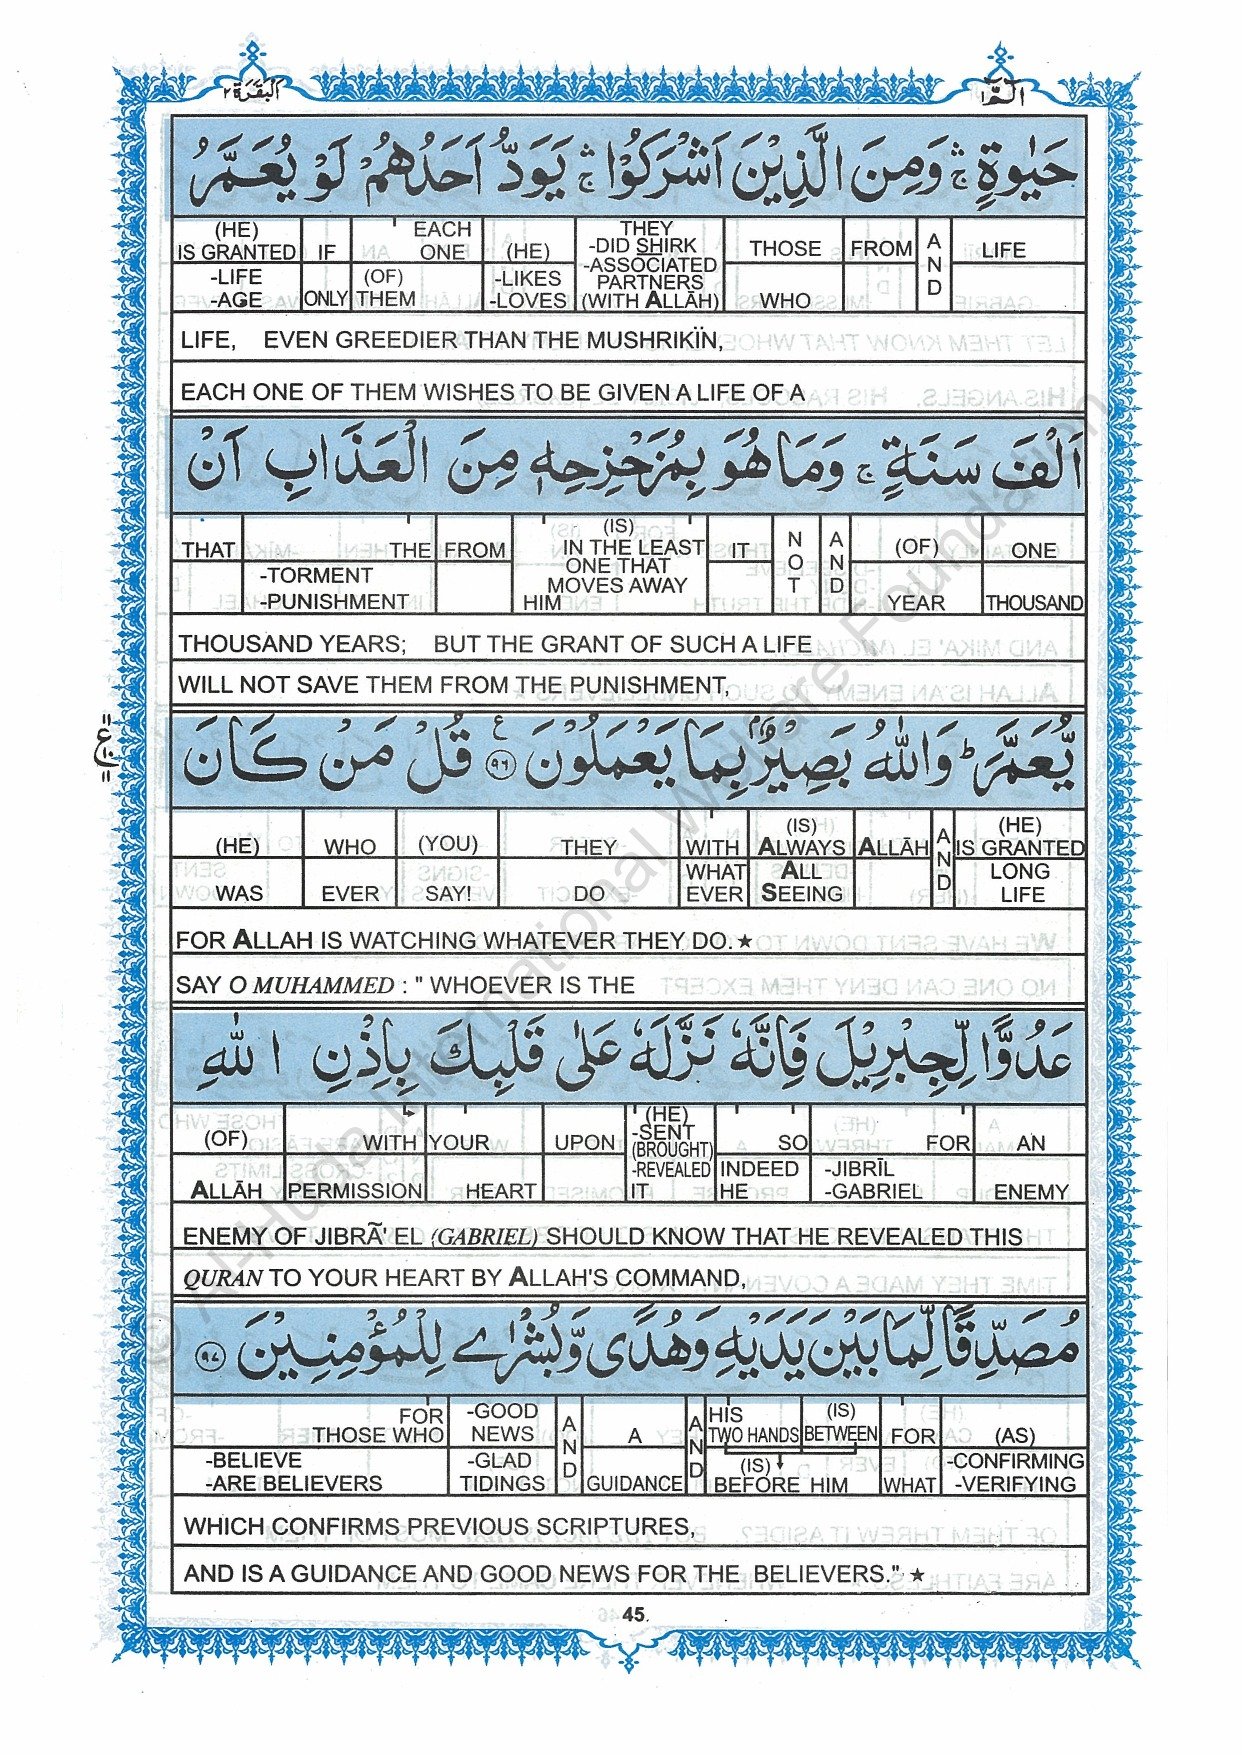 البقرة ٢
الٓمّٓ ١
حَيٰوةٍ ۛۚ وَمِنَ الَّذِيْنَ اَشْرَكُوْا ۛۚ يَوَدُّ اَحَدُهُمْ لَوْ يُعَمَّرُ
(HE) IS GRANTED -LIFE -AGE | IF ONLY | EACH ONE (OF) THEM | (HE) -LIKES -LOVES | THEY -DID SHIRK -ASSOCIATED PARTNERS (WITH ALLĀH) | THOSE WHO | FROM | AND | LIFE
LIFE, EVEN GREEDIER THAN THE MUSHRIKÏN,
EACH ONE OF THEM WISHES TO BE GIVEN A LIFE OF A
اَلْفَ سَنَةٍ ۚ وَمَا هُوَ بِمُزَحْزِحِهٖ مِنَ الْعَذَابِ اَنْ
THAT | THE -TORMENT -PUNISHMENT | FROM | (IS) IN THE LEAST ONE THAT MOVES AWAY HIM | IT | NOT | AND | (OF) YEAR | ONE THOUSAND
THOUSAND YEARS; BUT THE GRANT OF SUCH A LIFE
WILL NOT SAVE THEM FROM THE PUNISHMENT,
يُّعَمَّرَ ؕ وَاللّٰهُ بَصِيْرٌۢ بِمَا يَعْمَلُوْنَ ﴿٩٦﴾ ع قُلْ مَنْ كَانَ
(HE) WAS | WHO EVER | (YOU) SAY! | THEY DO | WITH WHAT EVER | (IS) ALWAYS ALL SEEING | ALLĀH | AND | (HE) IS GRANTED LONG LIFE
FOR ALLAH IS WATCHING WHATEVER THEY DO.★
SAY O MUHAMMED : " WHOEVER IS THE
عَدُوًّا لِّجِبْرِيْلَ فَاِنَّهٗ نَزَّلَهٗ عَلٰى قَلْبِكَ بِاِذْنِ اللّٰهِ
(OF) ALLĀH | WITH PERMISSION | YOUR HEART | UPON | (HE) -SENT (BROUGHT) -REVEALED IT | SO INDEED HE | FOR -JIBRĪL -GABRIEL | AN ENEMY
ENEMY OF JIBRÃ' EL (GABRIEL) SHOULD KNOW THAT HE REVEALED THIS
QURAN TO YOUR HEART BY ALLAH'S COMMAND,
مُصَدِّقًا لِّمَا بَيْنَ يَدَيْهِ وَهُدًى وَّبُشْرٰى لِلْمُؤْمِنِيْنَ ﴿٩٧﴾
FOR THOSE WHO -BELIEVE -ARE BELIEVERS | -GOOD NEWS -GLAD TIDINGS | AND | A GUIDANCE | AND | HIS TWO HANDS (IS) BETWEEN (IS) BEFORE HIM | FOR WHAT | (AS) -CONFIRMING -VERIFYING
WHICH CONFIRMS PREVIOUS SCRIPTURES,
AND IS A GUIDANCE AND GOOD NEWS FOR THE BELIEVERS." ★
45.
© Al-Huda International Welfare Foundation